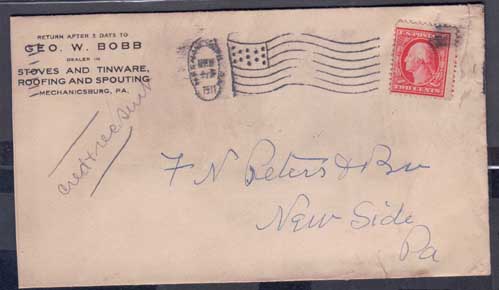 RETURN AFTER 5 DAYS TO
GEO. W. BOBB
DEALER IN
STOVES AND TINWARE,
ROOFING AND SPOUTING
MECHANICSBURG, PA.
1911
U.S. POSTAGE
TWO CENTS
F N Peters & Bro
New Side
Pa